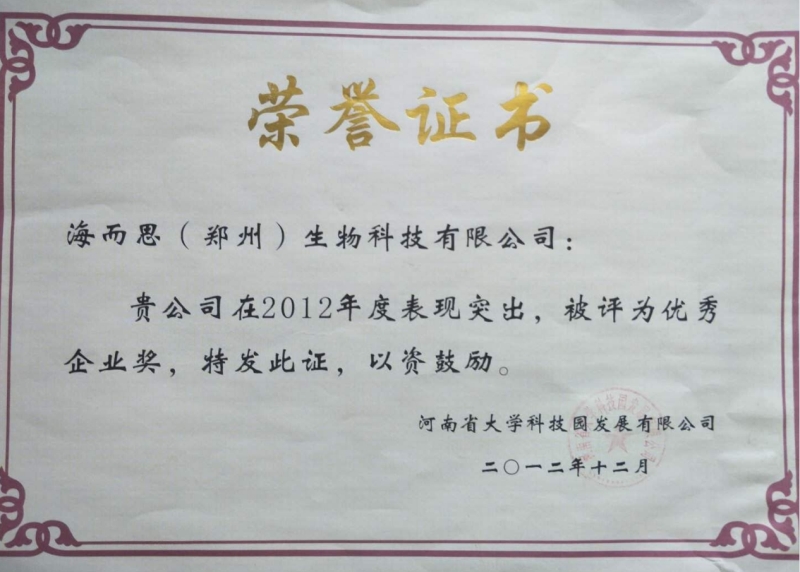 荣誉证书
海而思（郑州）生物科技有限公司：
贵公司在2012年度表现突出，被评为优秀
企业奖，特发此证，以资鼓励。
河南省大学科技园发展有限公司
二〇一二年十二月